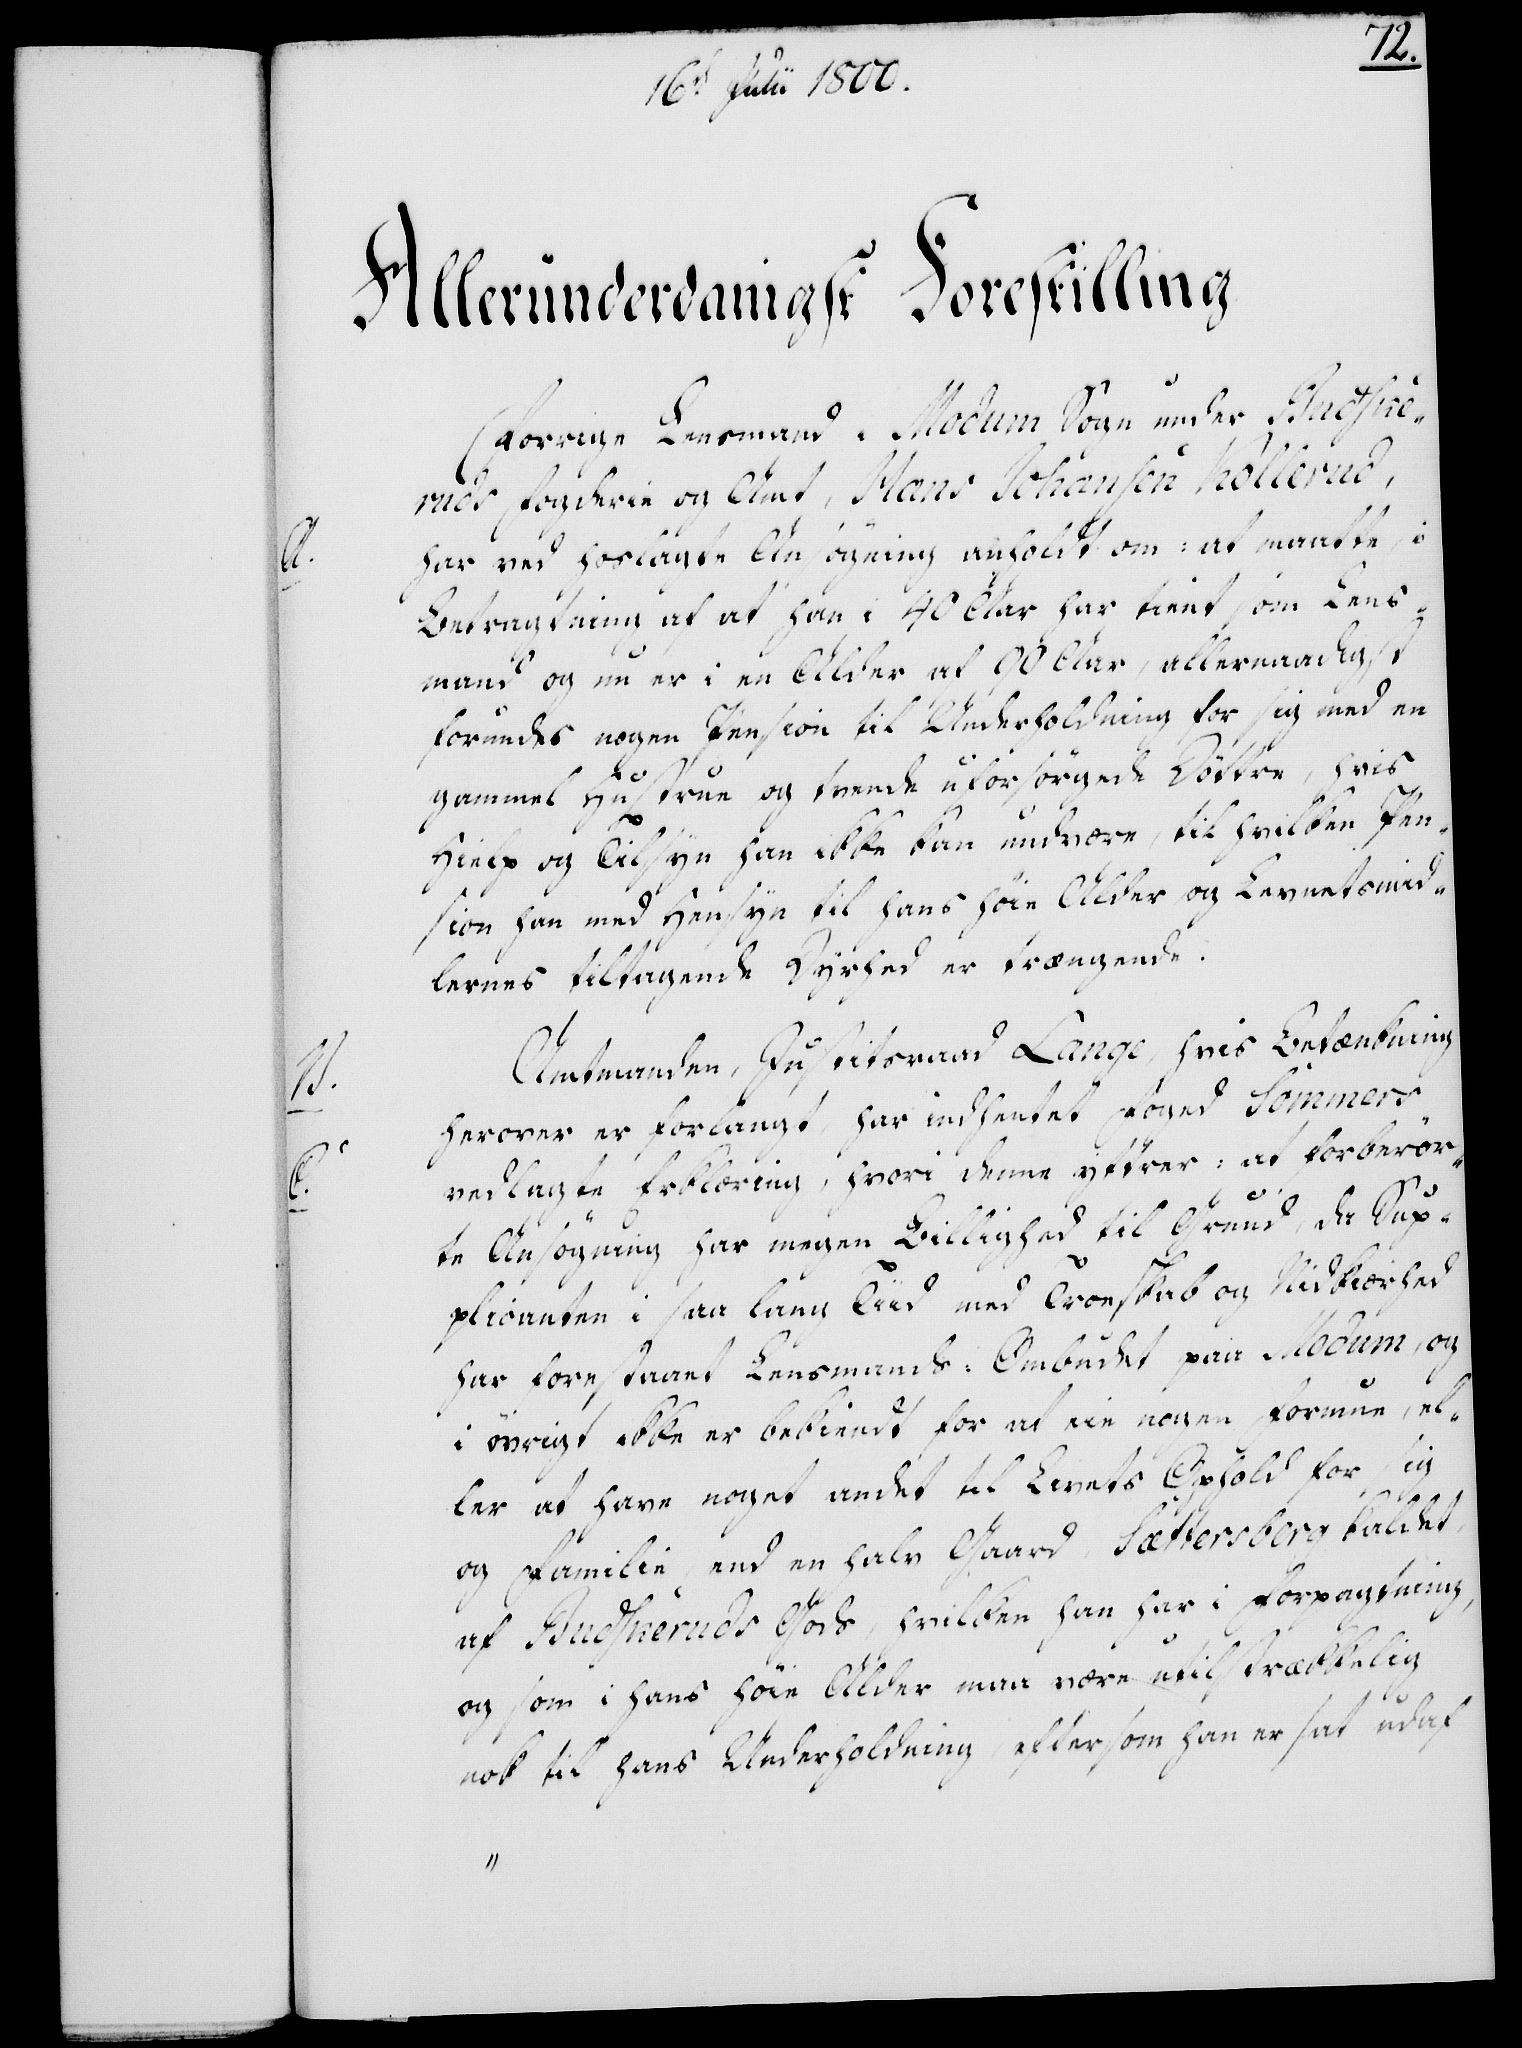 72.
16d Julii 1800.
Allerunderdanigst Forestilling
Forrige Lensmand i Modum Sogn under Budsche-
ruds Fogderie og Amt, Hans Johansen Kollerud,
A.
har ved hoslagte Ansøgning anholdt om: at maatte, i
Betragtning af at han i 40 Aar har tient som Lens-
mand og nu er i en Alder af 90 Aar, allernaadigst
forundes nogen Pension til Underholdning for sig med en
gammel Hustrue og tvende uforsørgede Døttre, hvis
Hielp og Tilsyn han ikke kan undvære, til hvilken Pen-
sion han med Hensyn til hans høie Alder og Levnetsmid-
lernes tiltagende Dyrhed er trængende.
B.
Amtmanden, Justitsraad Lange, hvis Betænkning
herover er forlangt, har indhentet Foged Sommers
C.
vedlagte Erklæring, hvori denne yttrer: at forberør-
te Ansøgning har megen Billighed til Grund, da Sup-
plicanten i saa lang Tiid med Troeskab og Nidkiærhed
har forestaaet Lensmands-Ombudet paa Modum, og
i øvrigt ikke er bekiendt for at eie nogen Formue, el-
ler at have noget andet til Livets Ophold for sig
og Familie, end en halv Gaard, Sættersberg kaldet,
af Budscheruds Gods, hvilken han har i Forpagtning,
og som i hans høie Alder maa være utilstrækkelig
nok til hans Underholdning, eftersom han er sat udaf
"